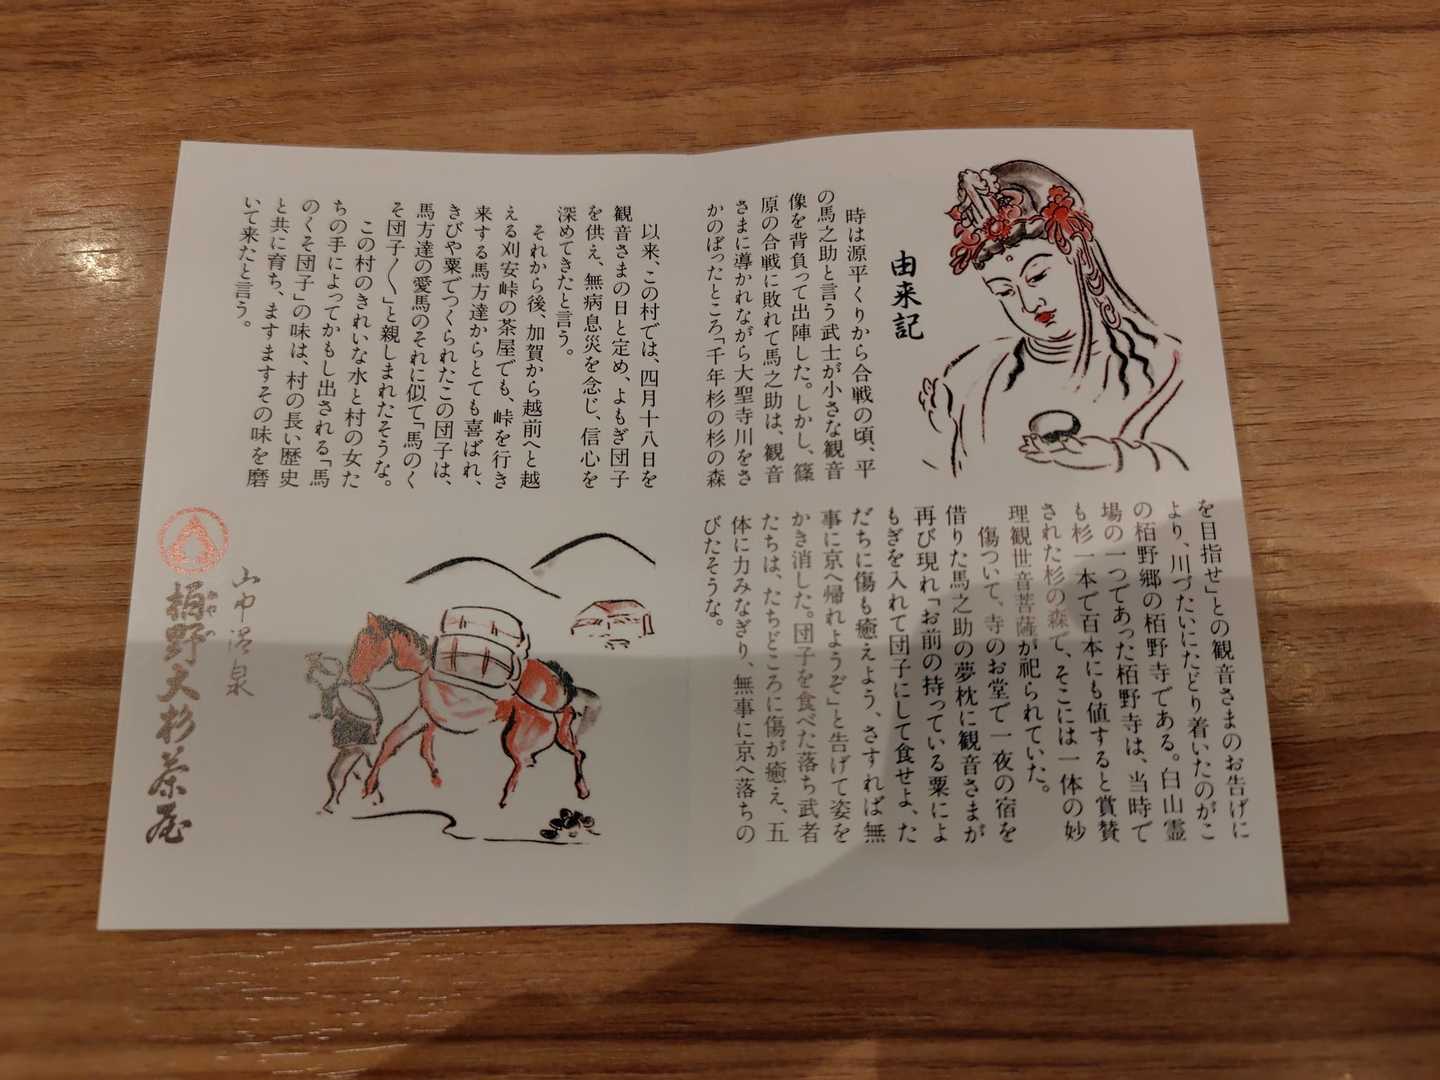 由来記
時は源平くりから合戦の頃、平
の馬之助と言う武士が小さな観音
像を背負って出陣した。しかし、篠
原の合戦に敗れて馬之助は、観音
さまに導かれながら大聖寺川をさ
かのぼったところ「千年杉の杉の森
を目指せ」との観音さまのお告げに
より、川づたいにたどり着いたのがこ
の栢野郷の栢野寺である。白山霊
場の一つであった栢野寺は、当時で
も杉一本で百本にも値すると賞賛
された杉の森で、そこには一体の妙
理観世音菩薩が祀られていた。
傷ついて、寺のお堂で一夜の宿を
借りた馬之助の夢枕に観音さまが
再び現れ「お前の持っている粟によ
もぎを入れて団子にして食せよ、た
だちに傷も癒えよう、さすれば無
事に京へ帰れようぞ」と告げて姿を
かき消した。団子を食べた落ち武者
たちは、たちどころに傷が癒え、五
体に力みなぎり、無事に京へ落ちの
びたそうな。
以来、この村では、四月十八日を
観音さまの日と定め、よもぎ団子
を供え、無病息災を念じ、信心を
深めてきたと言う。
それから後、加賀から越前へと越
える刈安峠の茶屋でも、峠を行き
来する馬方達からとても喜ばれ、
きびや粟でつくられたこの団子は、
馬方達の愛馬のそれに似て「馬のく
そ団子〱」と親しまれたそうな。
この村のきれいな水と村の女た
ちの手によってかもし出される「馬
のくそ団子」の味は、村の長い歴史
と共に育ち、ますますその味を磨
いて来たと言う。
山中温泉
栢野大杉茶屋
かやの